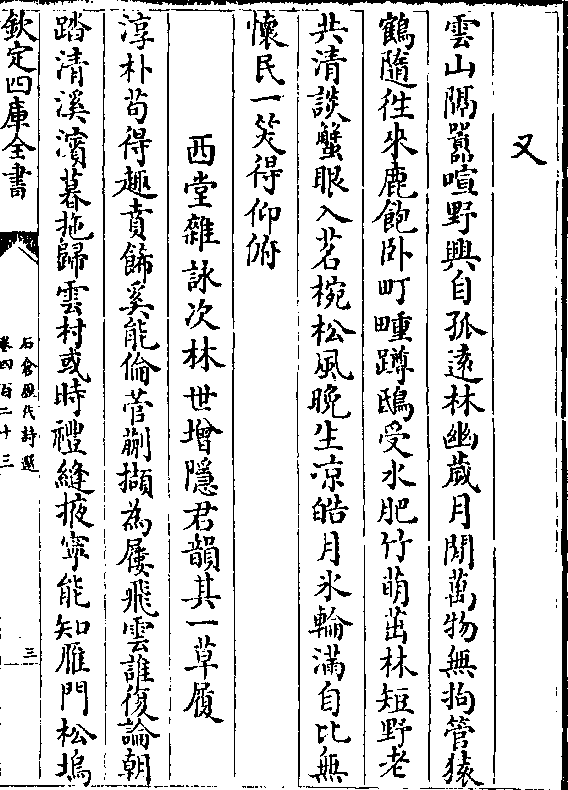 又
雲山隔囂喧野興自孤遠林幽歲月閒萬物無拘管猿
鶴隨往來鹿飽卧町畽蹲鴟受水肥竹萌茁林短野老
共清談蟹眼入茗椀松風晚生凉皓月氷輪滿自比無
懷民一笑得仰俯
西堂雜詠次林世增隱君韻其一草屨
淳朴苟得趣賁飾奚能倫菅蒯擷為屨飛雲誰復論朝
踏清溪濱暮拖歸雲村或時禮縫掖寧能知雁門松塢
欽定四庫全書
石倉歷代詩選
卷四百二十三
三